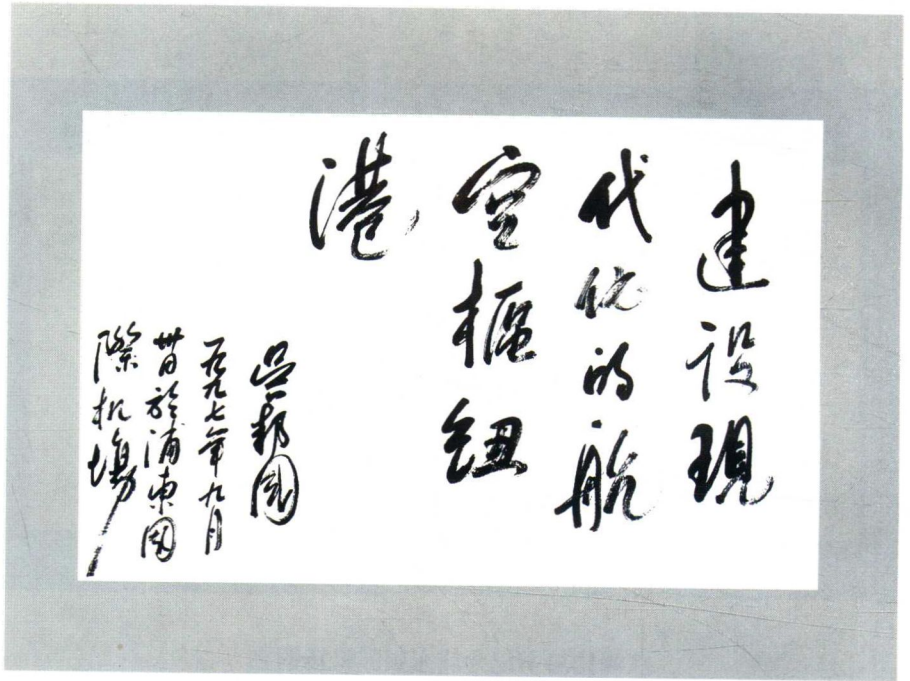 建设現
代化的航
空樞纽
港
吴邦国
一九九七年九月
卅日於浦東国
際机場